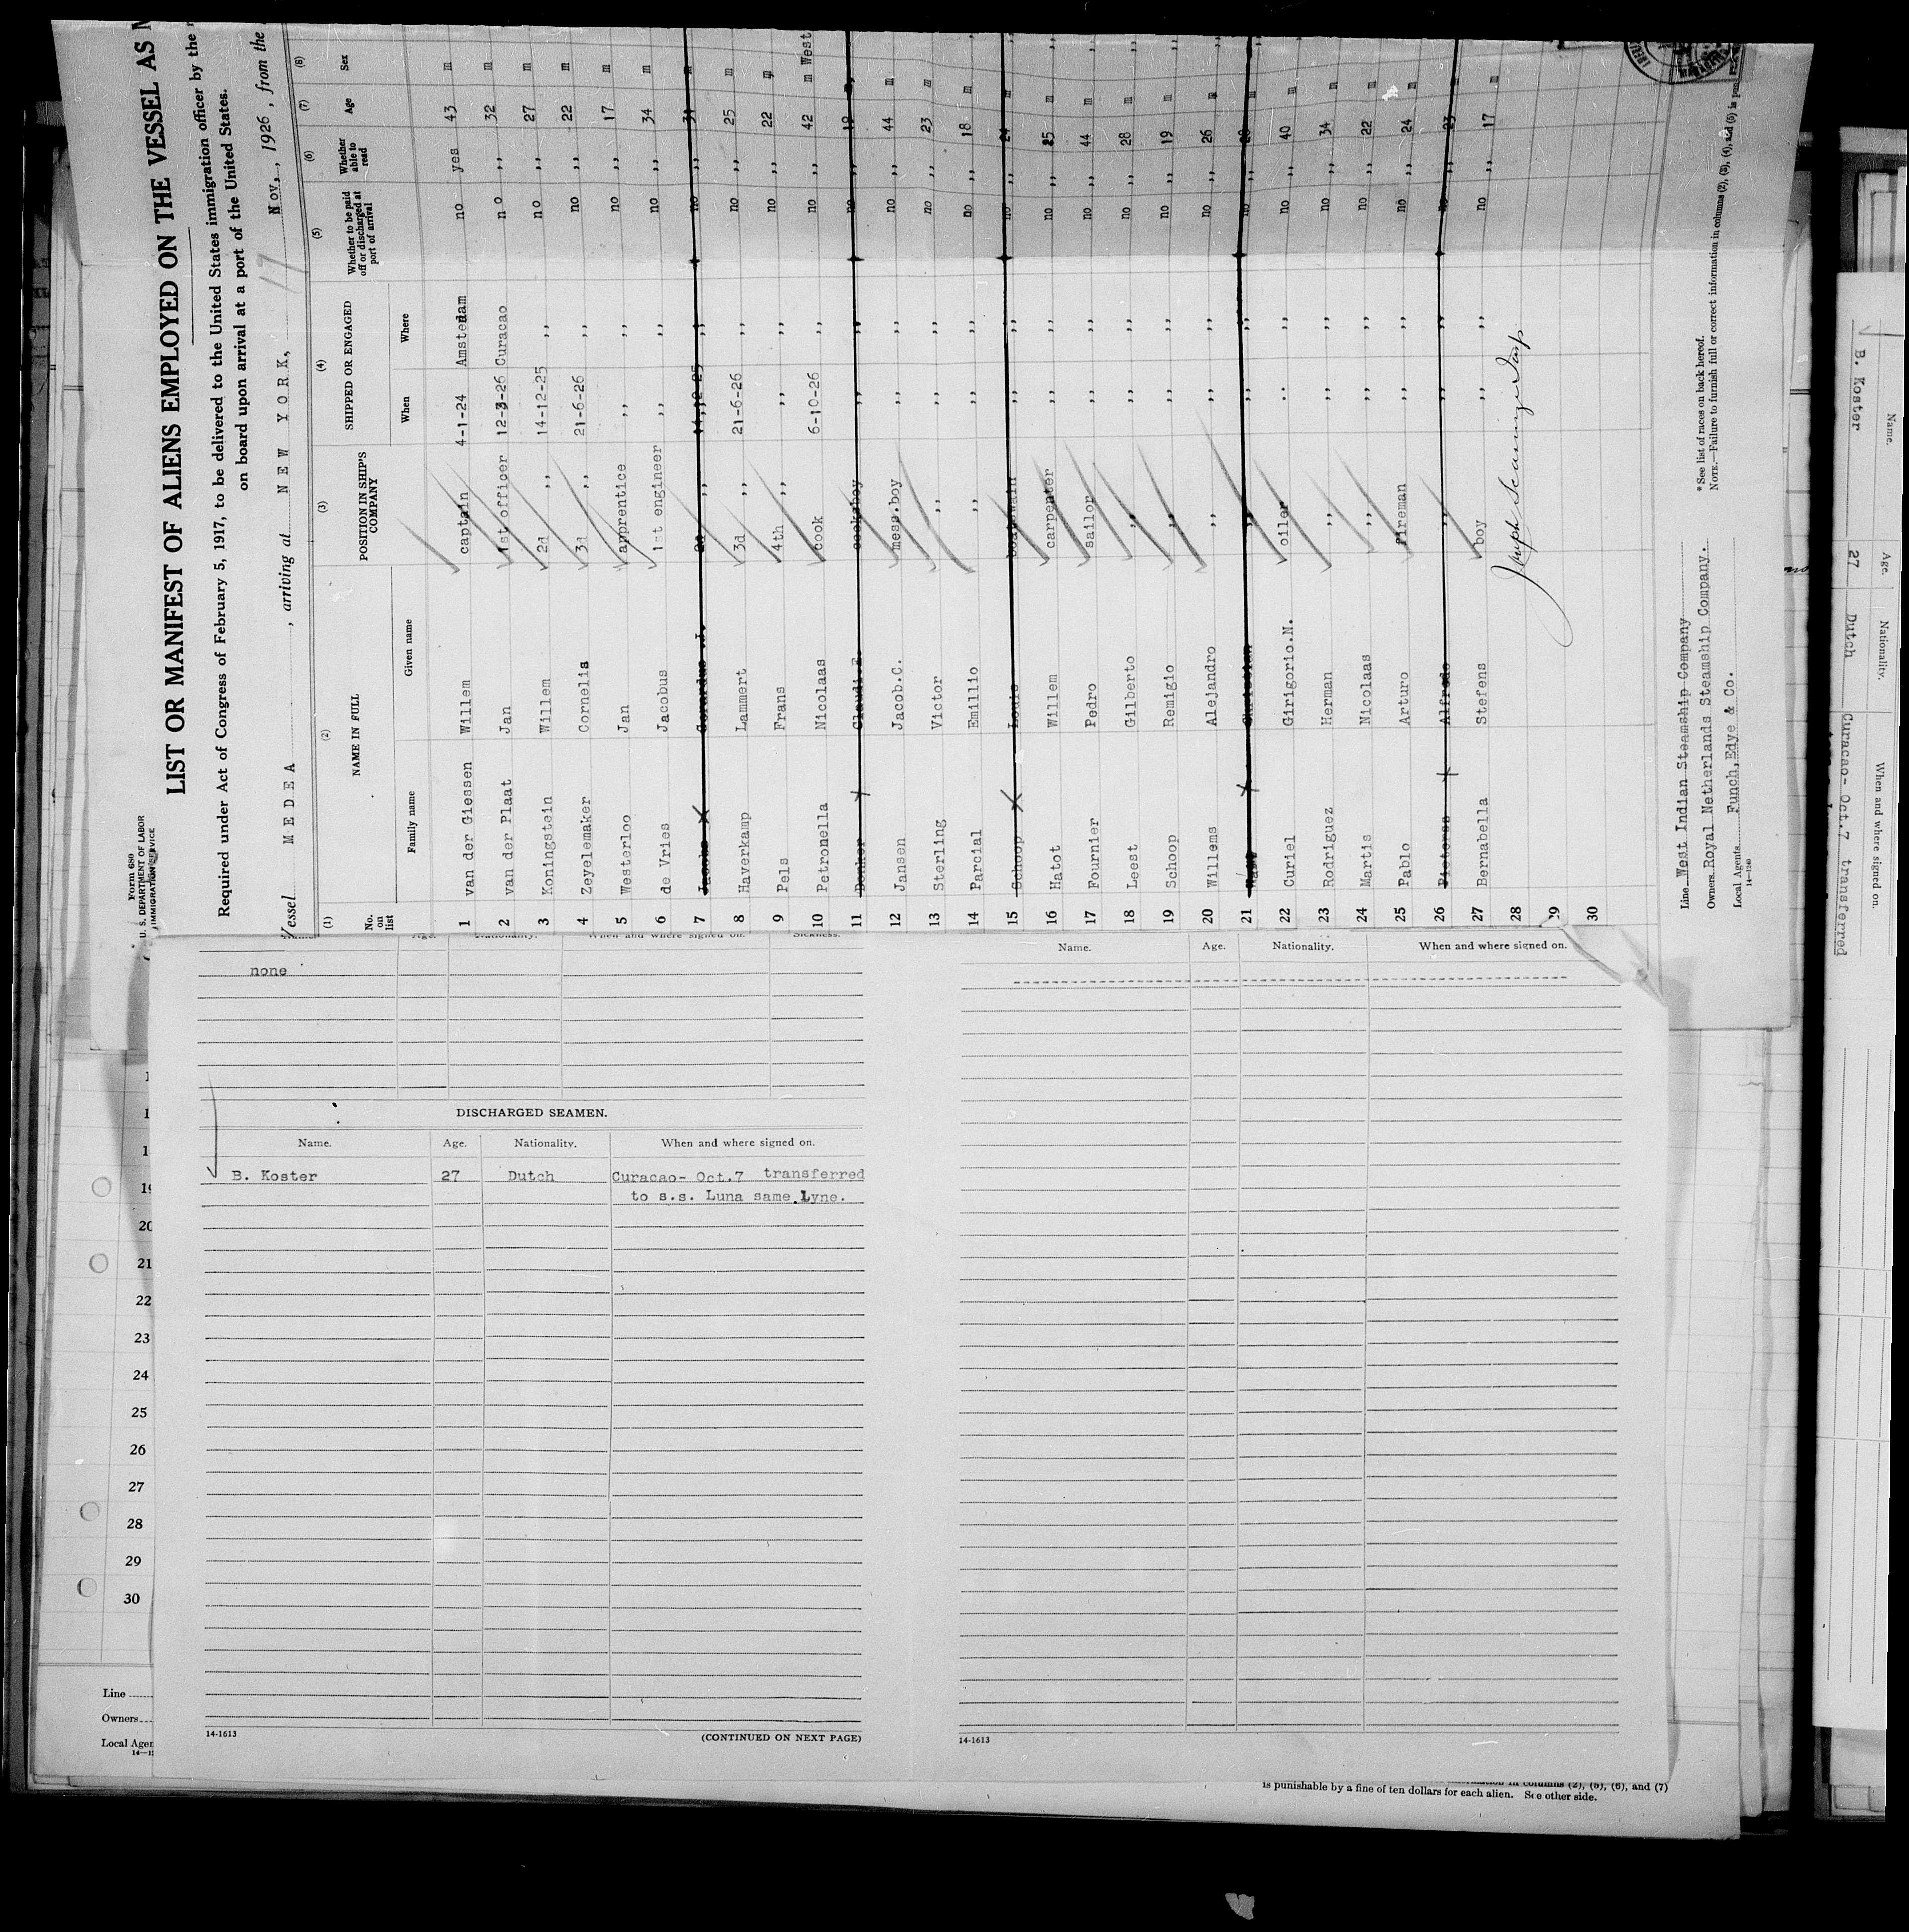 Form 680
U. S. DEPARTMENT OF LABOR
IMMIGRATION SERVICE
LIST OR MANIFEST OF ALIENS EMPLOYED ON THE VESSEL AS
Required under Act of Congress of February 5, 1917, to be delivered to the United States immigration officer by the
on board upon arrival at a port of the United States.
Vessel MEDEA, arriving at NEW YORK, 17 Nov., 1926, from the
(1) (2) (3) (4) (5) (6) (7) (8)
No. on list NAME IN FULL POSITION IN SHIP'S COMPANY SHIPPED OR ENGAGED Whether to be paid off or discharged at port of arrival Whether able to read Age Sex
Family name Given name When Where
1 van der Giessen Willem captain 4-1-24 Amsterdam no yes 43 m
2 van der Plaat Jan 1st officer 12-3-26 Curacao no ,, 32 m
3 Koningstein Willem 2d ,, 14-12-25 ,, no ,, 27 m
4 Zeyelemaker Cornelis 3d ,, 21-6-26 ,, no ,, 22 m
5 Westerloo Jan apprentice ,, ,, no ,, 17 m
6 de Vries Jacobus 1st engineer ,, ,, no ,, 34 m
7 Jacobs Gerardus J. 2d ,, 14-12-25 ,, no ,, 31 m
8 Haverkamp Lammert 3d ,, 21-6-26 ,, no ,, 25 m
9 Pels Frans 4th ,, ,, ,, no ,, 22 m
10 Petronella Nicolaas cook 6-10-26 ,, no ,, 42 m West
11 Donker cooksboy ,, ,, no ,, 19 m
12 Jansen Jacob.C. mess.boy ,, ,, no ,, 44 m
13 Sterling Victor ,, ,, ,, no ,, 23 m
14 Parcial Emillio ,, ,, ,, no ,, 18 m
15 Schoop Louis boatswain ,, ,, no ,, 24 m
16 Hatot Willem carpenter ,, ,, no ,, 25 m
17 Fournier Pedro sailor ,, ,, no ,, 44 m
18 Leest Gilberto ,, ,, ,, no ,, 28 m
19 Schoop Remigio ,, ,, ,, no ,, 19 m
20 Willems Alejandro ,, ,, ,, no ,, 26 m
21 Christian ,, ,, ,, no ,, m
22 Curiel Girigorio.N. oiler ,, ,, no ,, 40 m
23 Rodriguez Herman ,, ,, ,, no ,, 34 m
24 Martis Nicolaas ,, ,, ,, no ,, 22 m
25 Pablo Arturo fireman ,, ,, no ,, 24 m
26 Pietersz Alfredo ,, ,, ,, no ,, 23
27 Bernabella Stefens boy ,, ,, no ,, 17 m
28
29
30
Line West Indian Steamship Company
Owners Royal Netherlands Steamship Company.
Local Agents Funch, Edye & Co.
14-1240
*See list of races on back hereof.
NOTE.—Failure to furnish full or correct information in columns (2), (3), (4), and (5) is
Name. Age. Nationality. When and where signed on. Sickness.
none
DISCHARGED SEAMEN.
Name. Age. Nationality. When and where signed on.
B. Koster 27 Dutch Curacao- Oct.7 transferred
to s.s. Luna same Lyne.
14-1613
(CONTINUED ON NEXT PAGE)
Name. Age. Nationality. When and where signed on.
14-1613
20
21
22
23
24
25
26
27
28
29
30
Line
Owners
Local Agen
is punishable by a fine of ten dollars for each alien. See other side.
Name. Age. Nationality. When and where signed on.
B. Koster 27 Dutch Curacao- Oct.7 transferred